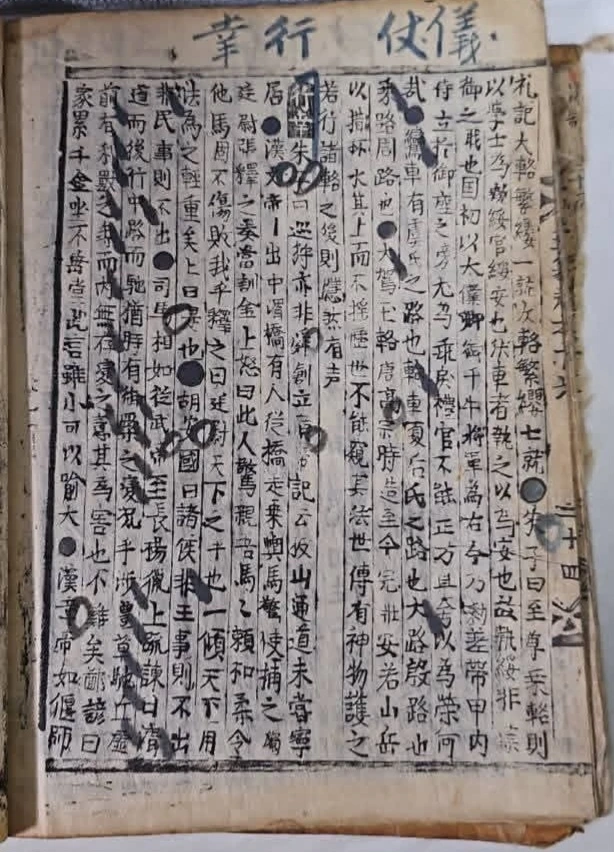 儀仗 行幸
礼記大輅繁纓一就次輅繁纓七就●朱子曰至尊乗輅則
以學士為執綏官綏安也升車者執之以為安也故執綏非
御之職也国初以大僕卿 千牛將軍為右今乃剩差帶甲内
侍立於御座之旁尤為乖戾禮官不能正乃且舍以為榮何
哉●鸞車有虞氏之路也鉤車夏后氏之路也大路殷路也
乘路周路也●大駕玉輅唐髙宗時造至今完壯安若山岳
以措杯 其上而不搖 世不能窺其法世傳有神物護之
若行諸輅之後則隱然有声
行幸 朱子曰巡狩亦非舜創立 記云披山通道未嘗寧
居●漢文帝一出中渭橋有人從橋走乗輿馬驚使捕之屬
廷尉張釋之奏當罰金上怒曰此人驚 親吾馬〻賴和柔令
他馬固不傷敗我乎釋之曰廷尉天下之平也一傾天下用
法為之輕重矣上曰是也●胡安國曰諸侯非王事則不出
非民事則不出●司馬相如從武帝至長楊獵上疏諫曰清
道而後行中路而馳猶時有銜橛之變况乎涉豊草騁丘虚
前有利獸之樂而内無存變之意其為害也不難矣鄙諺曰
家累千金坐不垂堂此言雖小可以喻大●漢章帝如偃師
二十四